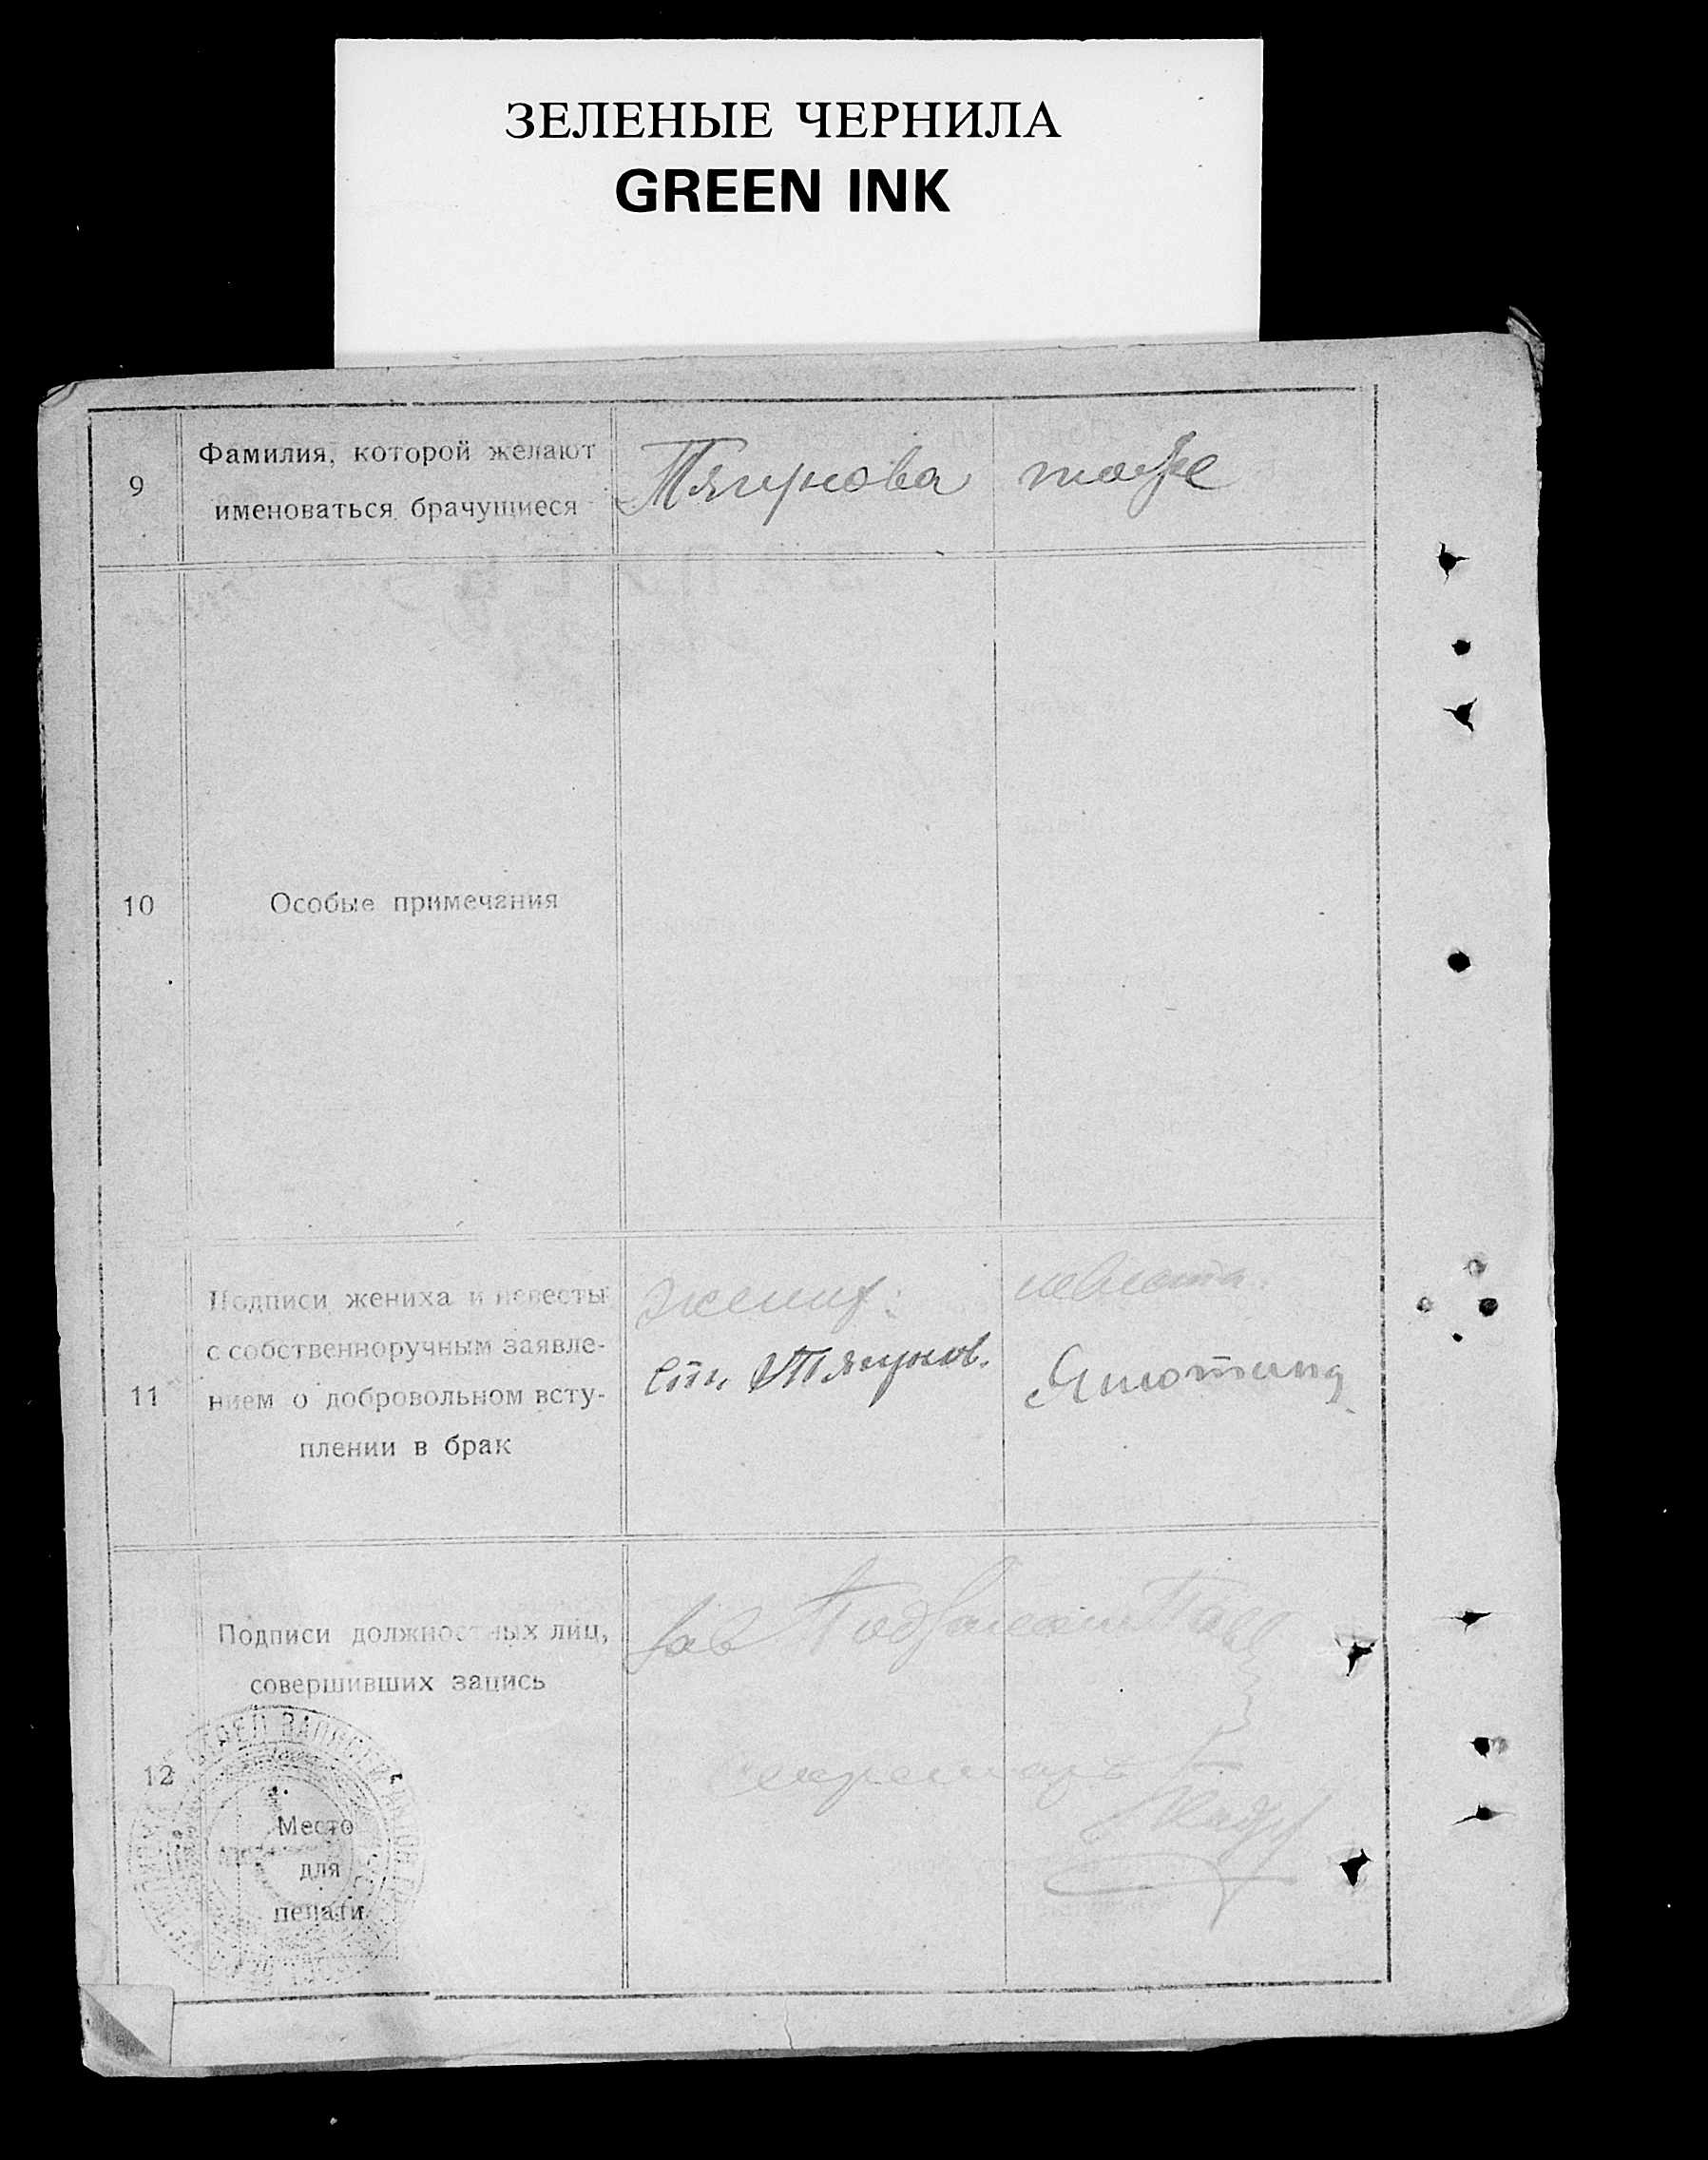 ЗЕЛЕНЫЕ ЧЕРНИЛА
GREEN INK
9
Фамилия, которой желают
именоваться брачущиеся
Тягунова
тоже
10
Особые примечания
11
Подписи жениха и невесты
с собственноручным заявле-
нием о добровольном всту-
плении в брак
жених:
невеста.
Тягунов.
12
Подписи должностных лиц,
совершивших запись
Зав
секретарь
Место
для
печати